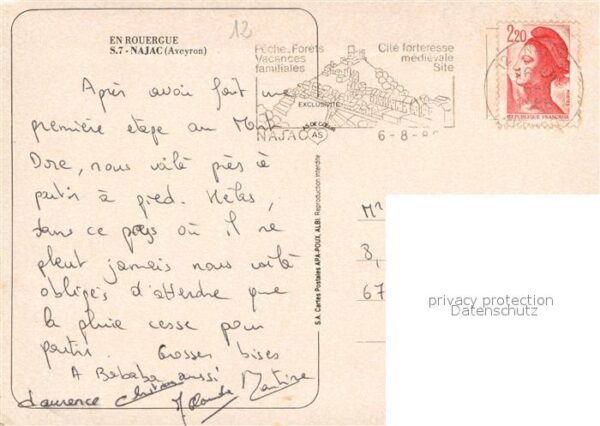 EN ROUERGUE
S.7 - NAJAC (Aveyron)
12
Pêche Forêts
Vacances
familiales
Cité forteresse
médiévale
Site
EXCLUSIVITÉ
AS DE CŒUR
AS
NAJAC
6-8-8
2,20
REPUBLIQUE FRANCAISE
Après avoir fait une
première étape au Mont
Dore, nous voilà près à
partir à pied. Hélas,
dans ce pays où il ne
pleut jamais nous voilà
obligés d'attendre que
la pluie cesse pour
partir. Grosses bises
A Bababa aussi
Laurence Martine
S.A. Cartes Postales APA-POUX, ALBI. Reproduction interdite
Mr
8,
67
privacy protection
Datenschutz